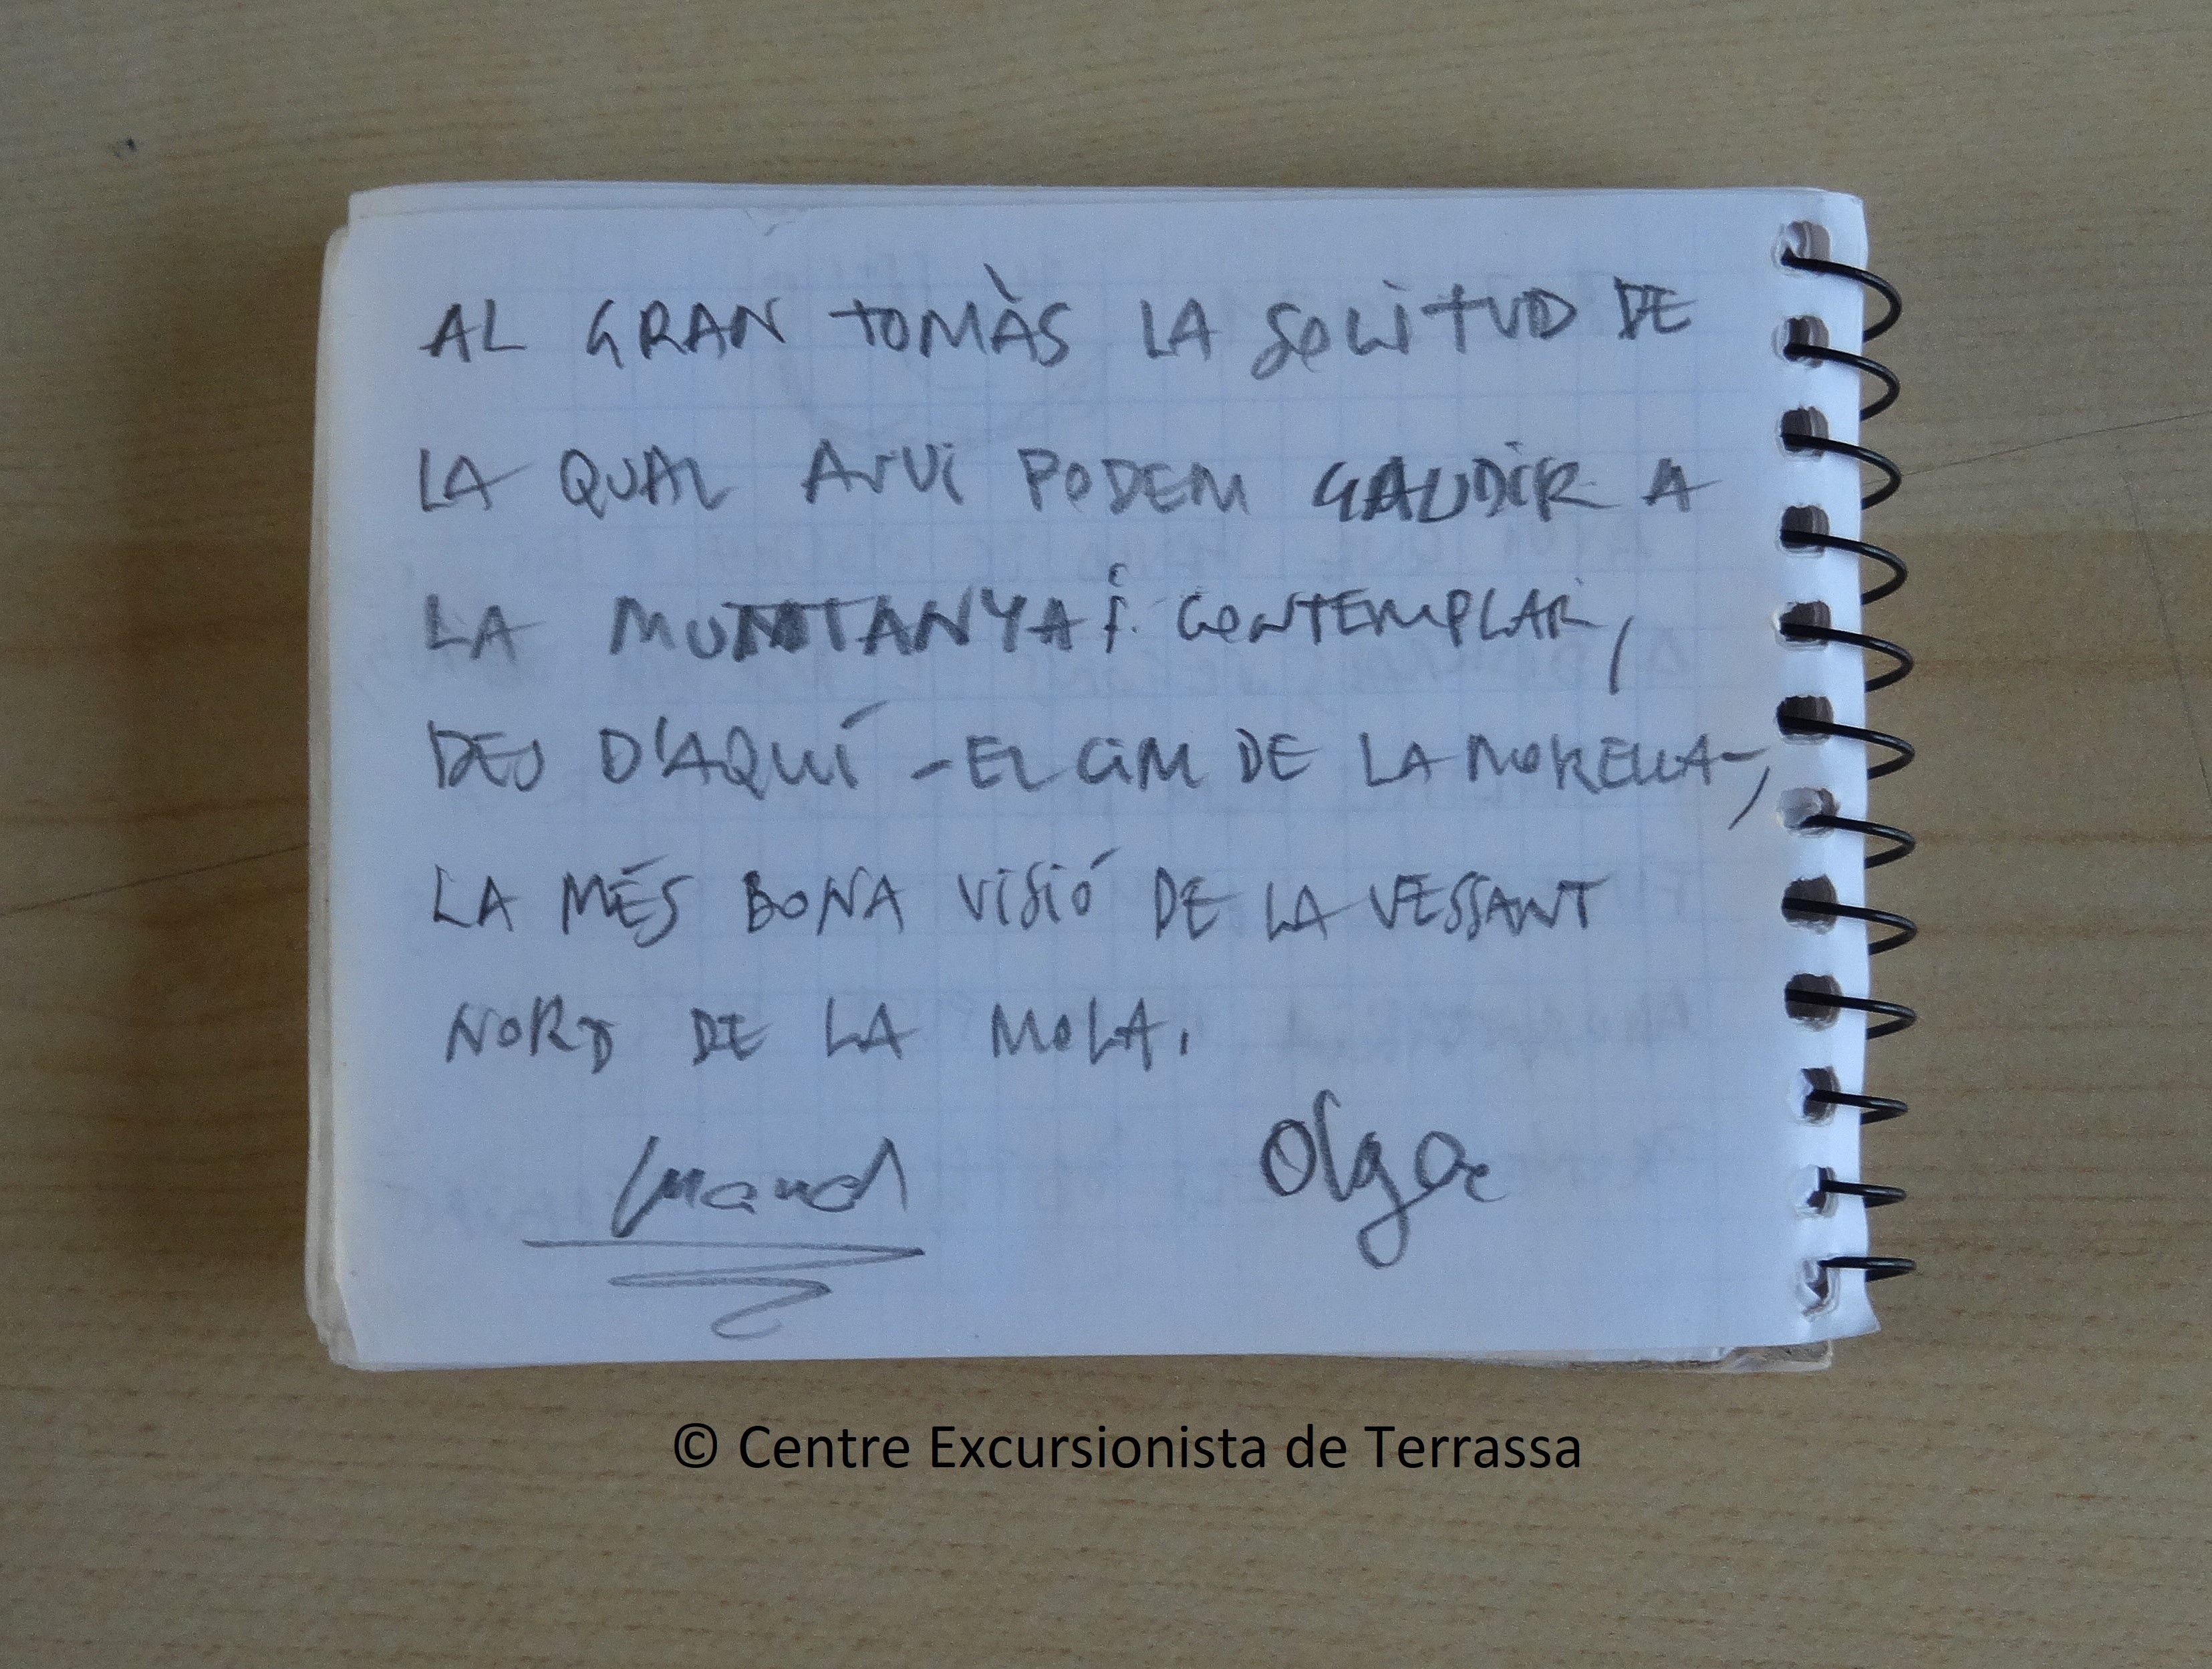 AL GRAN TOMÀS LA SOLITUD DE
LA QUAL AVUI PODEM GAUDIR A
LA MUNTANYA i CONTEMPLAR,
DES D'AQUÍ - EL CIM DE LA MORELLA -,
LA MÉS BONA VISIÓ DE LA VESSANT
NORD DE LA MOLA.
Olga
© Centre Excursionista de Terrassa